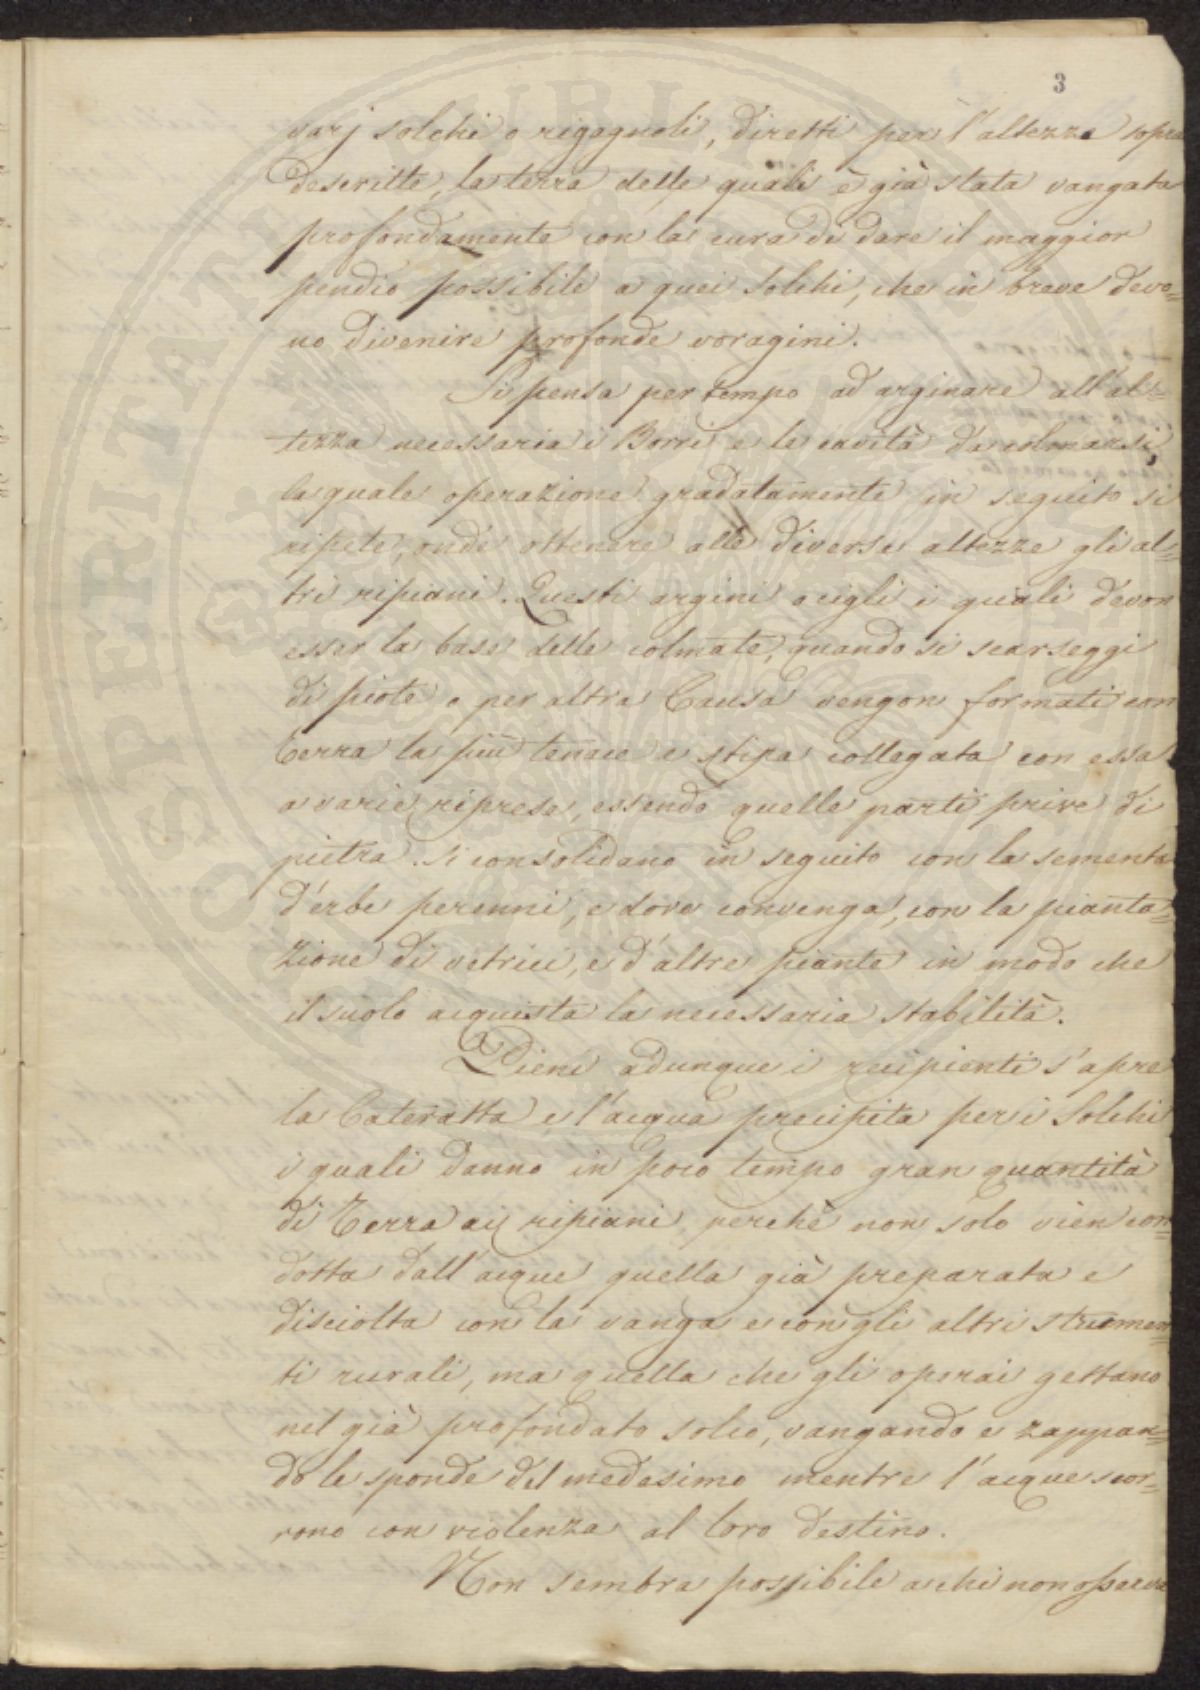 3
varj solchi o rigagnoli, diretti per l'altezze sopra
descritte, la terra delle quali è già stata vangata
profondamente con la cura di dare il maggior
pendio possibile a quei solchi, che in breve devo=
no divenire profonde voragini.
Si pensa per tempo ad arginare all'al=
tezza necessaria i Borri e le cavità da colmarsi,
la quale operazione gradatamente in seguito si
ripete, onde ottenere alle diverse altezze gli al=
tri ripiani. Questi argini o cigli i quali devon
esser la base delle colmate, quando si scarseggi
di piote o per altra Causa vengon formati con
terra la più tenace e stipa collegata con essa
a varie riprese, essendo quelle parti prive di
pietra. Si consolidano in seguito con la sementa
d'erbe perenni, e dove convenga, con la pianta=
zione di vetrici, e d'altre piante in modo che
il suolo acquista la necessaria stabilità.
Pieni adunque i recipienti s'apre
la Cateratta e l'acqua precipita per i Solchi
i quali danno in poco tempo gran quantità
di Terra ai ripiani, perchè non solo vien con=
dotta dall'acque quella già preparata e
disciolta con la vanga e con gli altri strumen=
ti rurali, ma quella che gli operai gettano
nel già profondato solco, vangando e zappan=
do le sponde del medesimo mentre l'acque scor=
rono con violenza al loro destino.
Non sembra possibile a chi non osserva